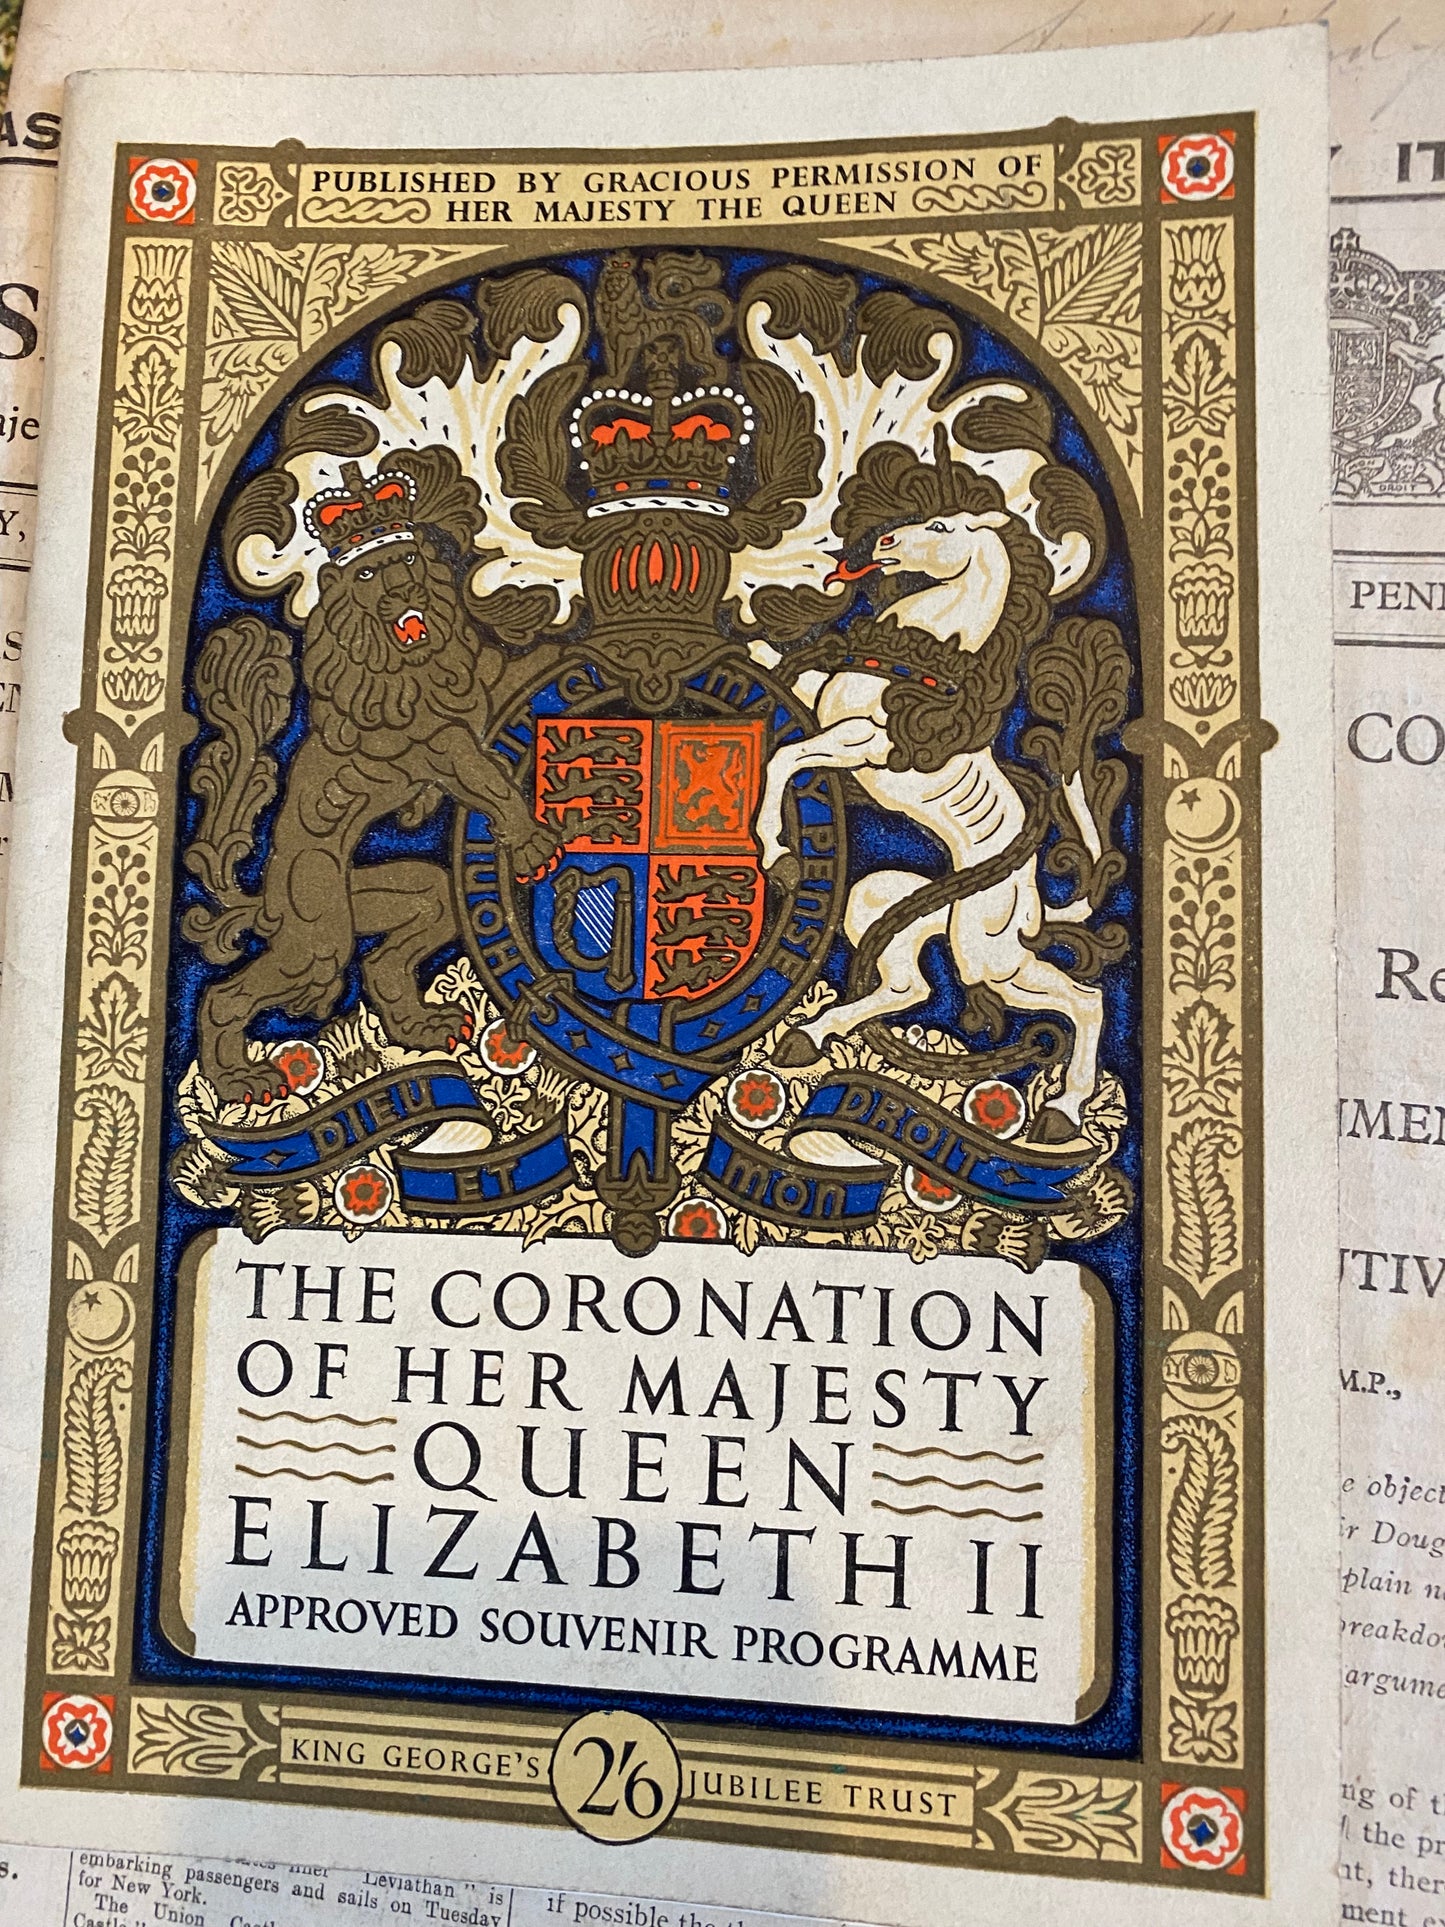 PUBLISHED BY GRACIOUS PERMISSION OF
HER MAJESTY THE QUEEN
HONI SOIT QUI MAL Y PENSE
DIEU ET MON DROIT
THE CORONATION
OF HER MAJESTY
QUEEN
ELIZABETH II
APPROVED SOUVENIR PROGRAMME
KING GEORGE'S 2'6 JUBILEE TRUST
AS
IT
DROIT
CO
M.P.,
embarking passengers and sails on Tuesday
Leviathan" is
for New York.
The Union
if possible the
e object
plain
argume
ng of
the pr